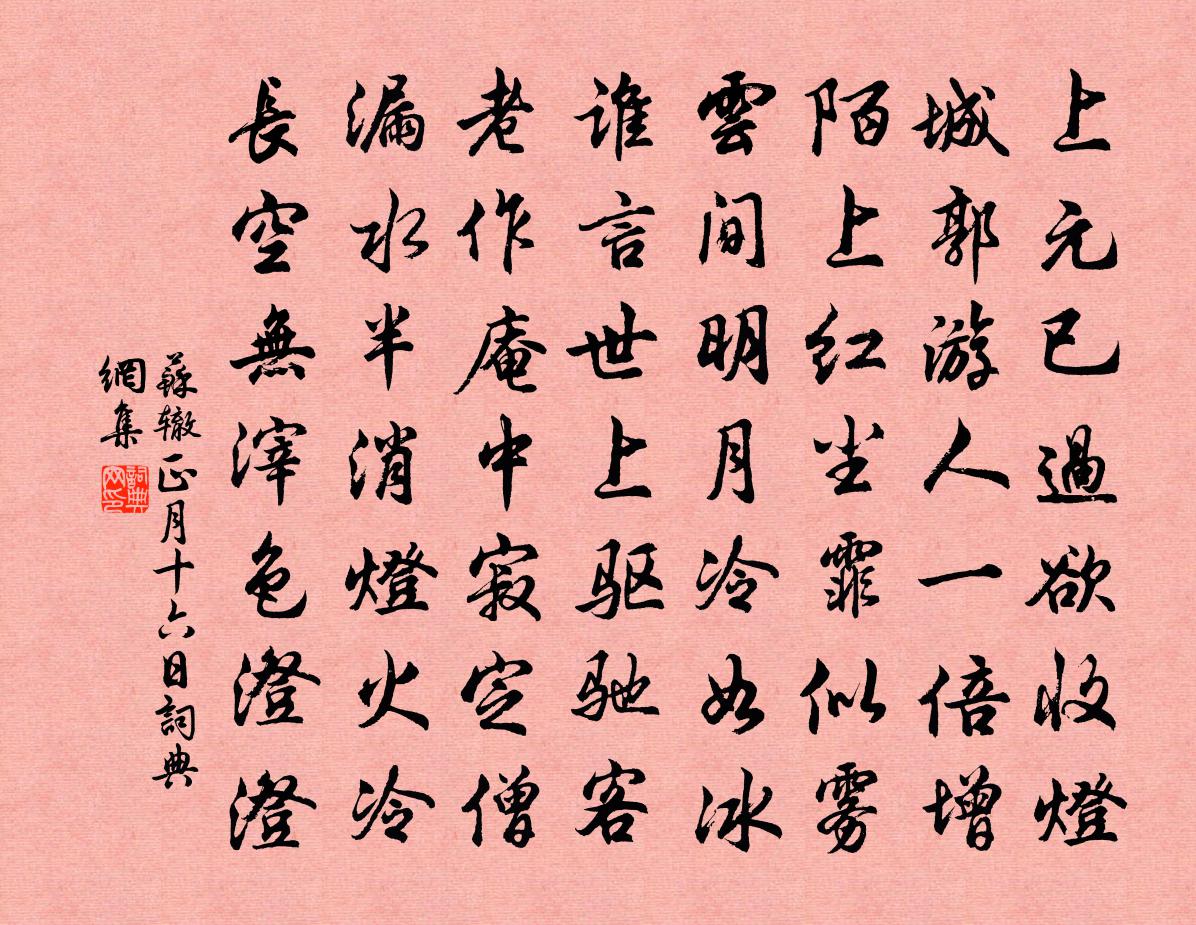 上元已過欲收燈
城郭游人一倍增
陌上红尘霏似雾
雲间明月冷如冰
谁言世上驱驰客
老作庵中寂定僧
漏水半消燈火冷
長空無滓色澄澄
蘇辙正月十六日詞典
網集
詞典
网印